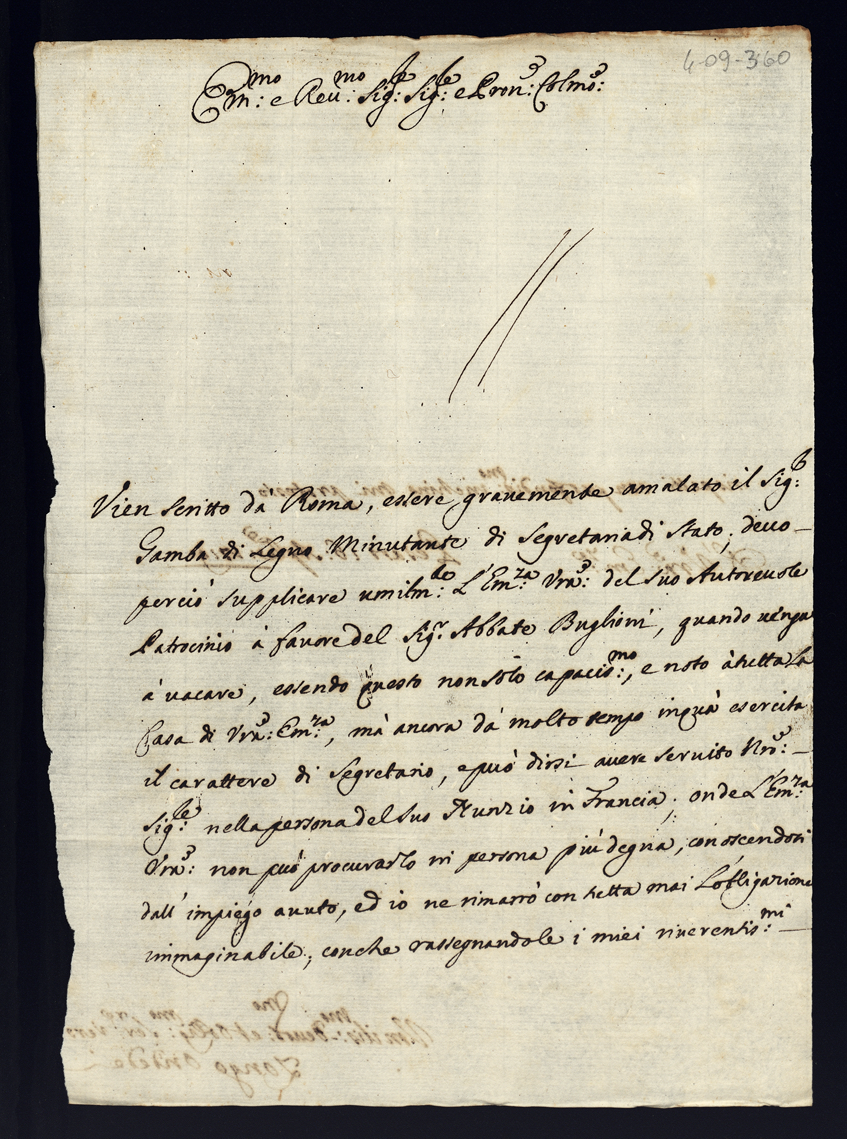 4-09-360
Em:mo e Reu:mo Sig:le Sig:le e Pron:e Colmo:
Vien scritto dà Roma, essere gravemente amalato il Sig:r
Gamba di Legno Minutante di Segretaria di Stato; deuo-
perciò supplicare umilm:te L'Em:za Vra: del suo Autoreuole
Patrocinio à fauore del Sig.r Abbate Buglioni, quando uenga
à uacare, essendo questo non solo capacis:mo, e noto à tutta La
Casa di Vra: Em:za, mà ancora dà molto tempo inquà esercita
il carattere di Segretario, e può dirsi auere seruito Nro:-
Sig:le nella persona del suo Nunzio in Francia; onde L'Em:za
Vra: non può procurarlo in persona più degna, conoscendosi
dall'impiego auuto, ed io ne rimarrò con tutta mai L'obligazione
immaginabile; con che rassegnandole i miei riuerentis:mi-